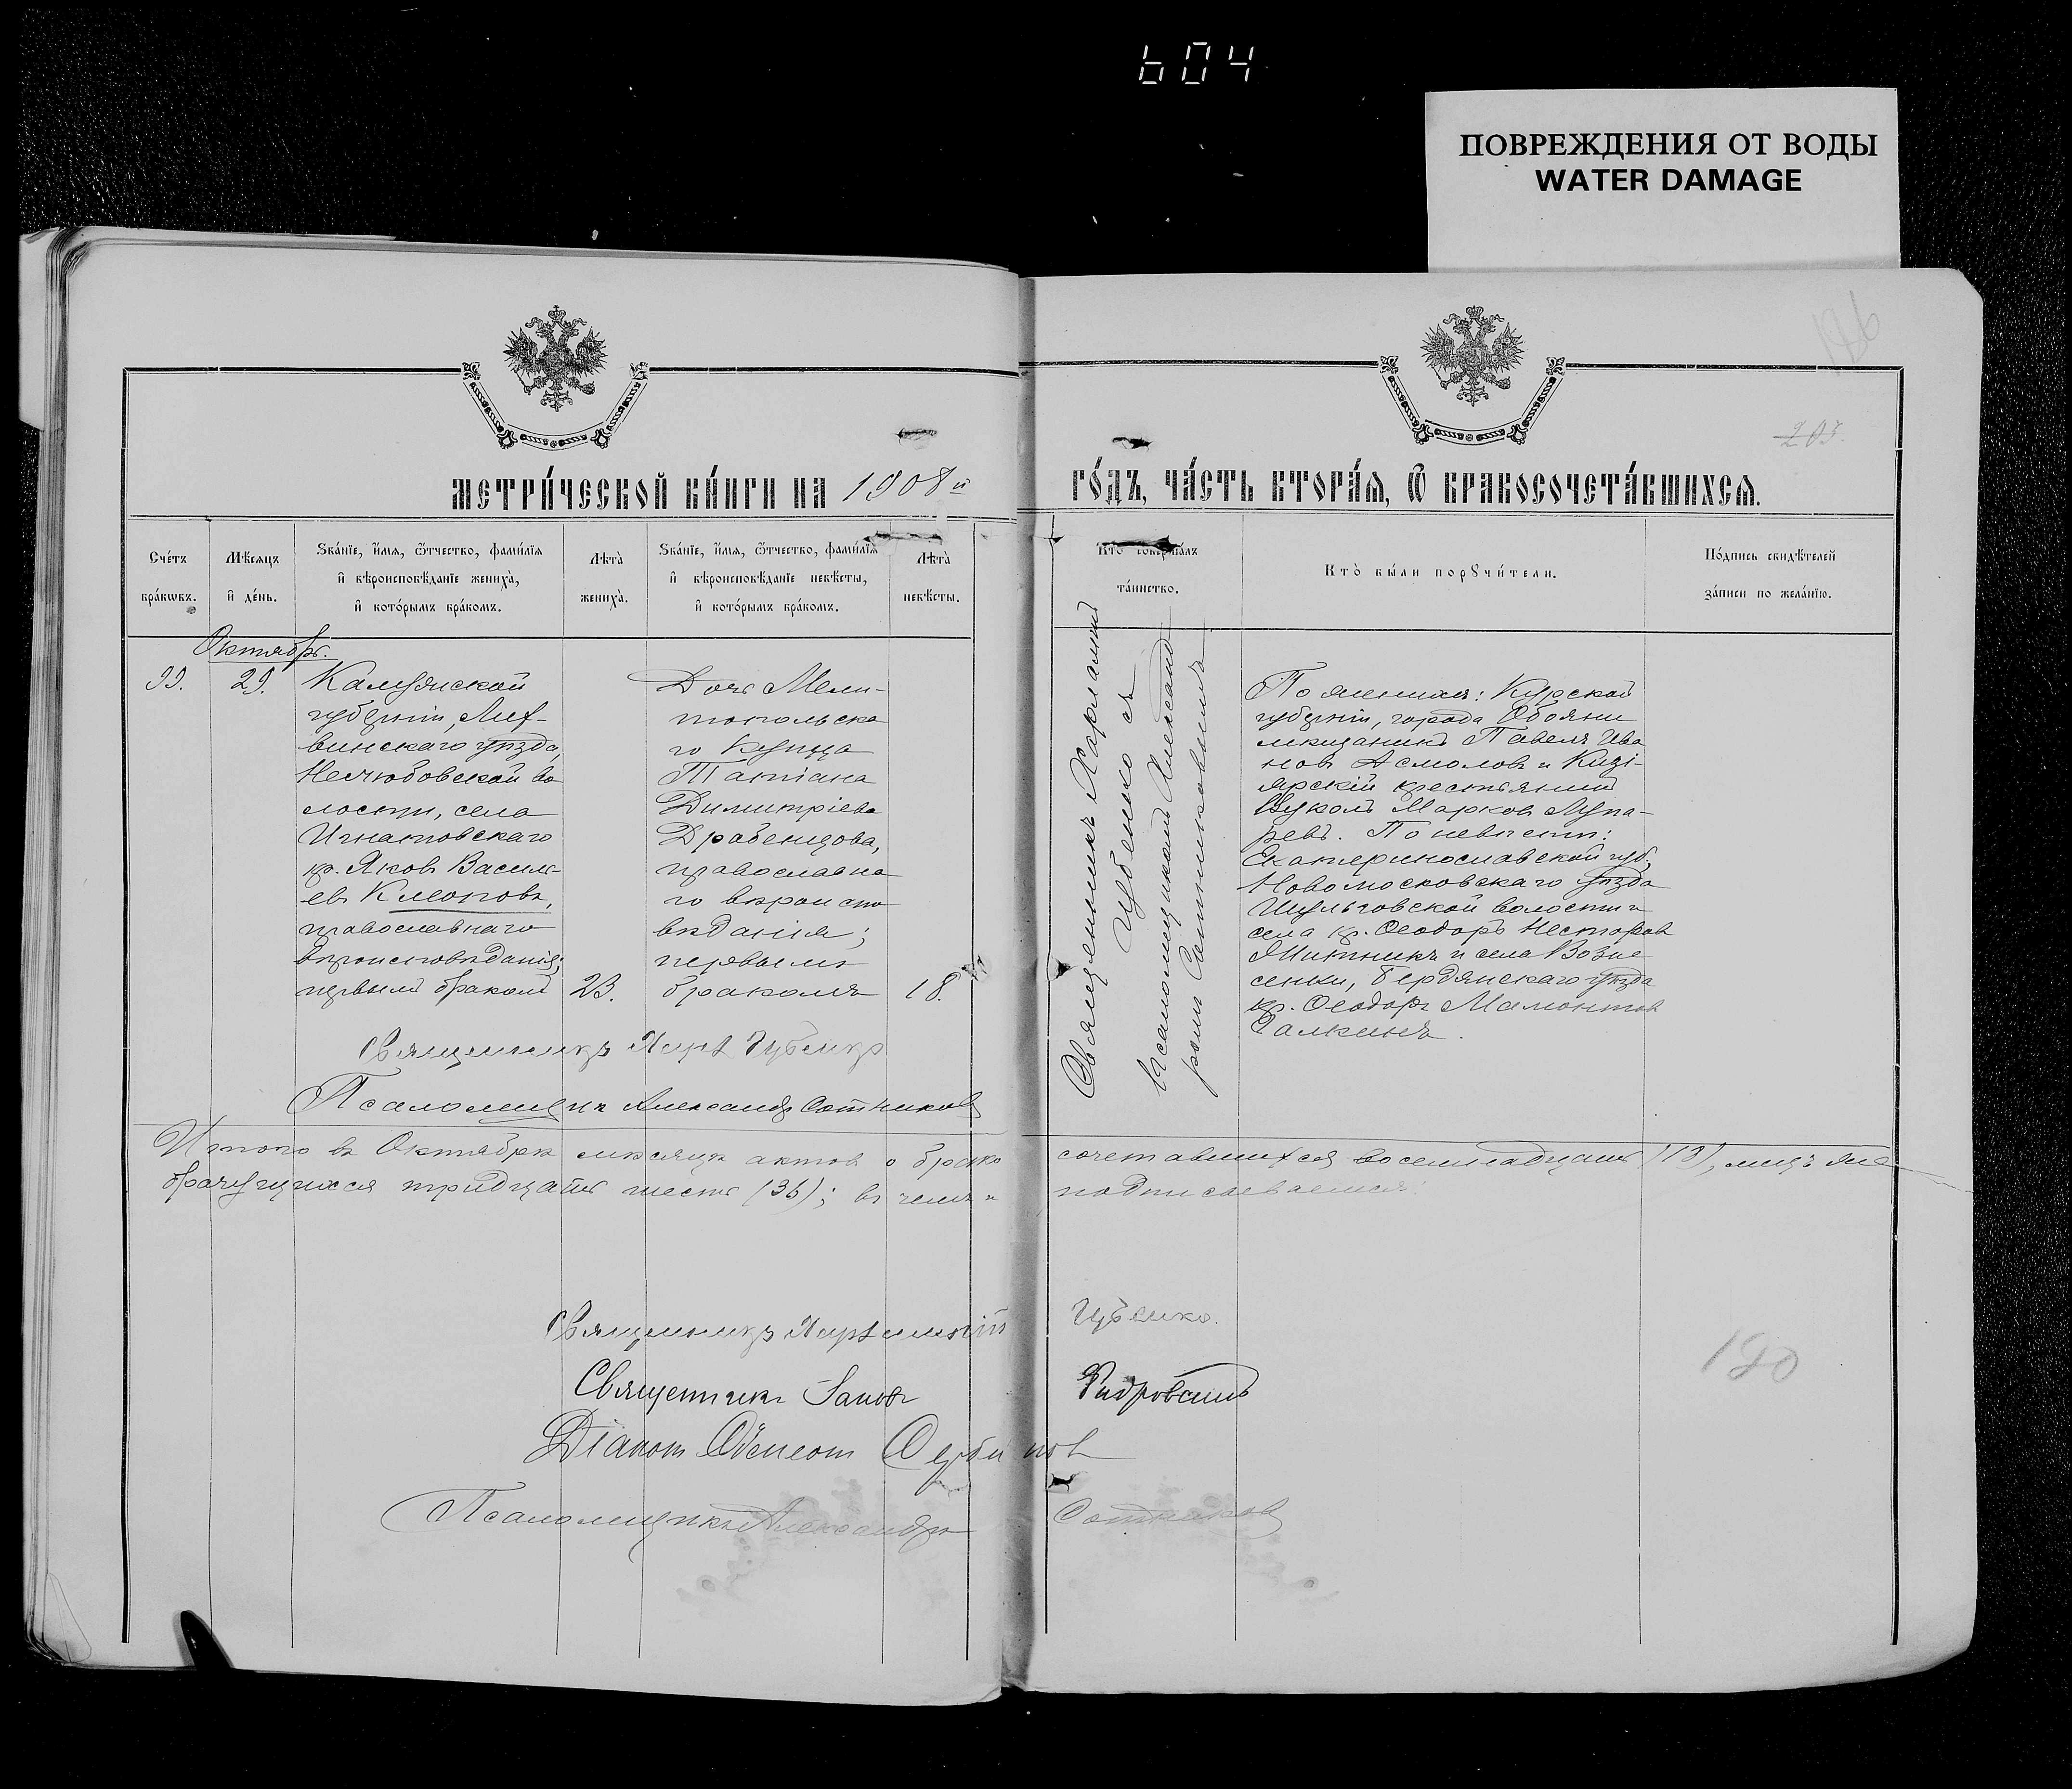 604
ПОВРЕЖДЕНИЯ ОТ ВОДЫ
WATER DAMAGE
126
203.
МЕТРИ́ЧЕСКОЙ КНИ́ГИ НА 1908й
ГО́ДЪ, ЧА́СТЬ ВТОРА́Я, Ѿ БРАКОСОЧЕТА́ВШИХСЯ.
Сче́тъ бра́кѡвъ.
Мѣ́сяцъ и҆ де́нь.
Ѕва́нїе, и҆́мя, ѻ҆́тчество, фами́лїя и҆ вѣроисповѣ́данїе жениха̀, и҆ кото́рымъ бра́комъ.
Лѣта̀ жениха̀.
Ѕва́нїе, и҆́мя, ѻ҆́тчество, фами́лїя и҆ вѣроисповѣ́данїе невѣ́сты, и҆ кото́рымъ бра́комъ.
Лѣта̀ невѣ́сты.
Кто̀ соверша́лъ та́инство.
Кто̀ бы́ли порꙋчи́тели.
По́дпись свидѣ́телей за́писи по жела́нїю.
Октябрь.
99.
29.
Калужской
губерніи, Лих-
винскаго уѣзда,
во
лости, села
Игнатовскаго
кр. Яковъ Василь-
евъ Клоповъ,
православнаго
вѣроисповѣданія;
первымъ бракомъ
23.
Дочь Мели-
топольска
го купца
Татіана
Димитріева
Драбенцова,
православна
го вѣроиспо
вѣданія;
первымъ
бракомъ
18.
Священникъ Харлампій
Губенко съ
псаломщикомъ Александ
ромъ Сотниковымъ
По женихѣ: Курской
губерніи, города Обояни
мѣщанинъ Павелъ Ива
новъ Асмоловъ и Кизі-
ярскій крестьянинъ
Вуколъ Марковъ Лупа-
ревъ. По невѣстѣ:
Екатеринославской губ.,
Новомосковскаго уѣзда
волости и
села кр. Ѳеодоръ Несторовъ
и села Возне
сенки, Бердянскаго уѣзда
кр. Ѳеодоръ Мамонтовъ
Галкинъ.
Священникъ Харл. Губенко
Псаломщикъ Александръ Сотниковъ
Итого въ Октябрѣ мѣсяцѣ актовъ о брако сочетавшихся восемнадцать (18), лицъ же
брачущихся тридцать шесть (36); въ чемъ и подписываемся:
Священникъ Харлампій Губенко.
Священникъ
Діаконъ
Псаломщикъ Александръ Сотниковъ
180